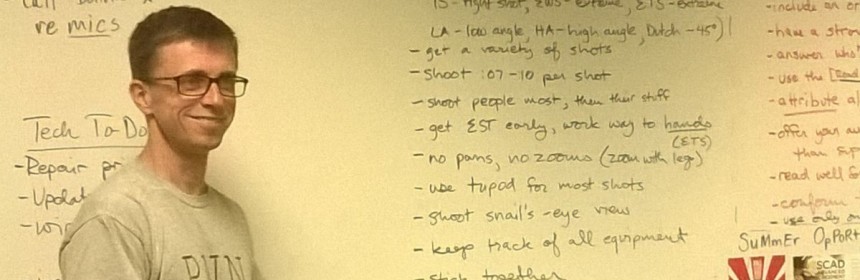 re mics
Tech To-Do
-Repair
-Updat
TS- tight shot, EWS-extreme, ETS-extreme
LA- low angle, HA-high angle, Dutch -45°)
- get a variety of shots
- shoot :07-10 per shot
- shoot people most, then their stuff
- get EST early, work way to hands
(ETS)
- no pans, no zooms (zoom with legs)
- use tripod for most shots
- shoot snail's-eye view
- keep track of all equipment
- stick together
-include an
-have a stron
- answer who
- use the
- attribute al
- offer your au
than
- read well fo
- conform
- use only
SuMmEr OpPoRt
SCAD
RUN